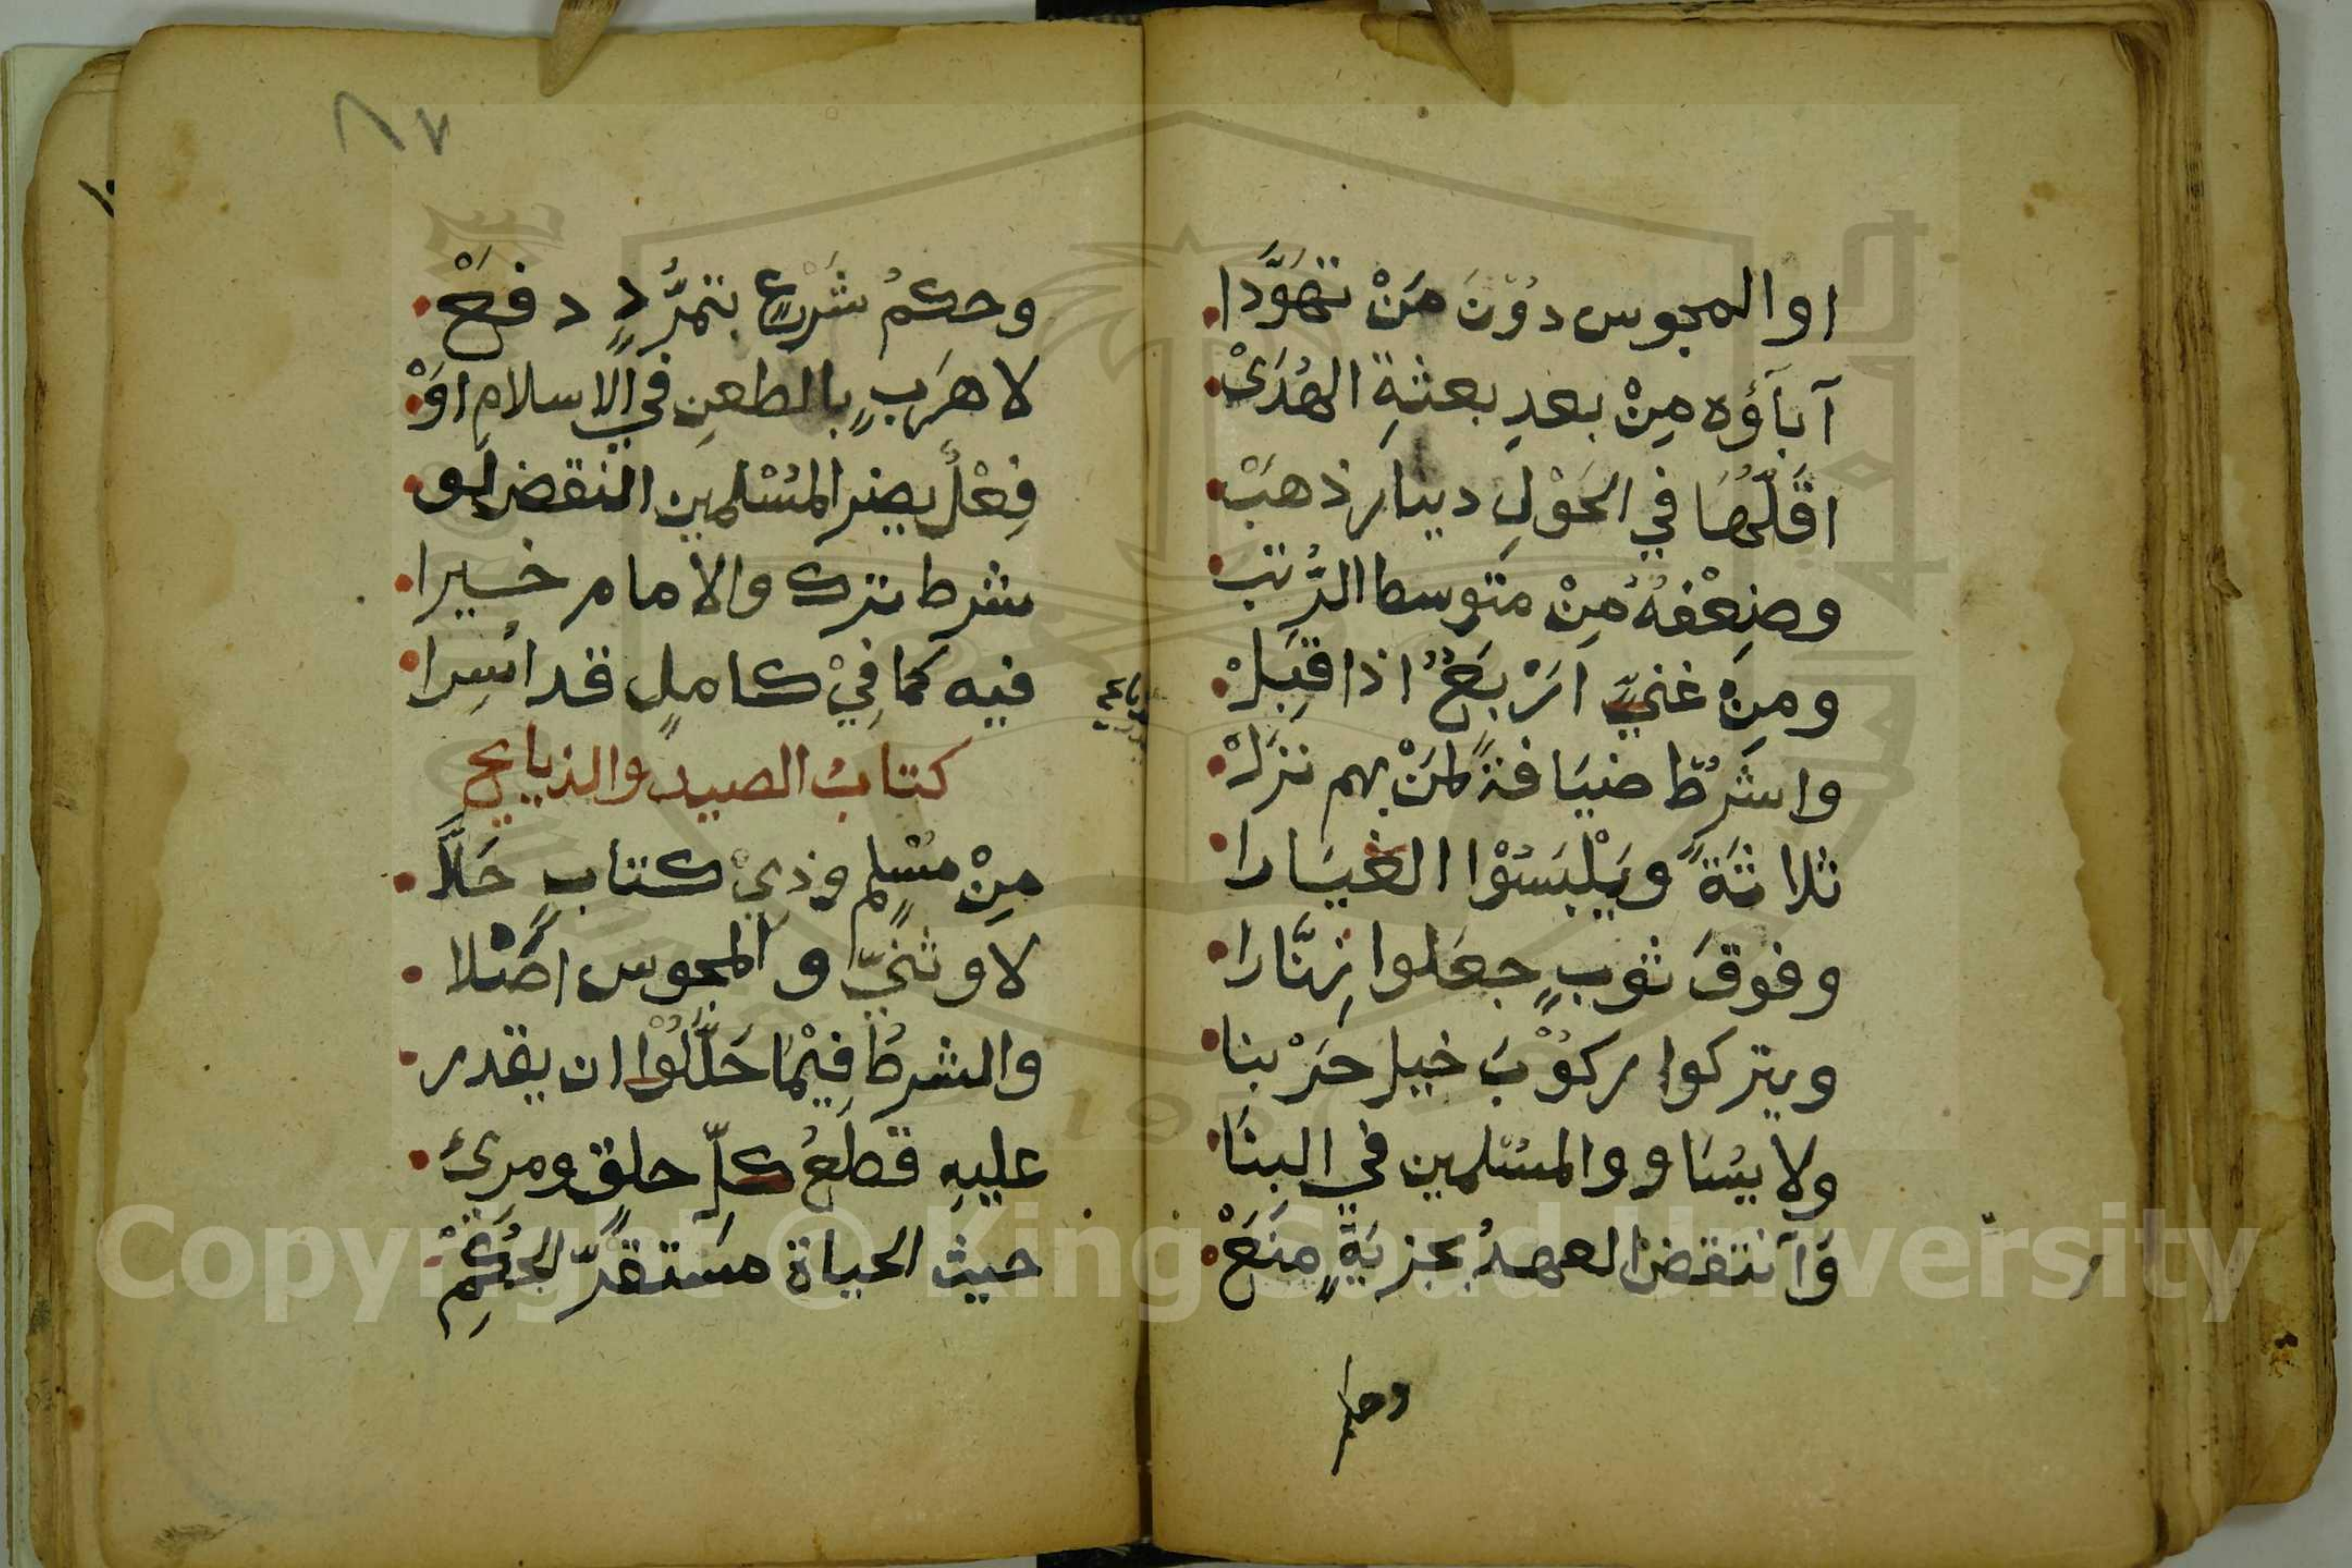 او المجوس دُوْنَ مَنْ تَهَوَّدَا
آباَؤُه مِنْ بعدِ بعثةِ الهُدَىْ
اقَلُّهَا في الحَوْلِ دينار ذهَبْ
وضِعْفهُ مِنْ متوسط الرُّتب
ومِنْ غنيٍّ ارْبَعٌ اذا قَبِلْ
واشرُطْ ضيَافةً لمَنْ بهم نزَلْ
ثلاثَةً ويَلْبَسُوْا الغيَارا
وفوقَ ثوبٍ جعَلوا زِنَّارا
ويتركوا ركُوْبَ خيل حَرْبنا
ولا يسَاووا المسْلمين في البنَا
وَانتقضَ العهدُ بجزيَةٍ منَعْ
وحكم
وحكمُ شَرْعٍ بتمرُّدٍ دفَعْ
لا هرَبٍ بالطعنِ في الاسلامِ اوْ
فِعْلٌ يضر المُسْلمين النقض لو
شرط ترك والامام خيرا
فيه كما فِيْ كاملٍ قد اسِرا
كتابُ الصيد والذبايح
مِنْ مُسْلمٍ وذِيْ كتابٍ حَلَّا
لا وثنيّ والمجوس اصْلا
والشرطُ فِيْمَا حَلَّلُوْا ان يقدر
عليهِ قطعُ كلّ حلقٍ ومرئ
حيث الحياة مستقرّ الحُكْمِ
٨٧
Copyright © King Saud University
1957